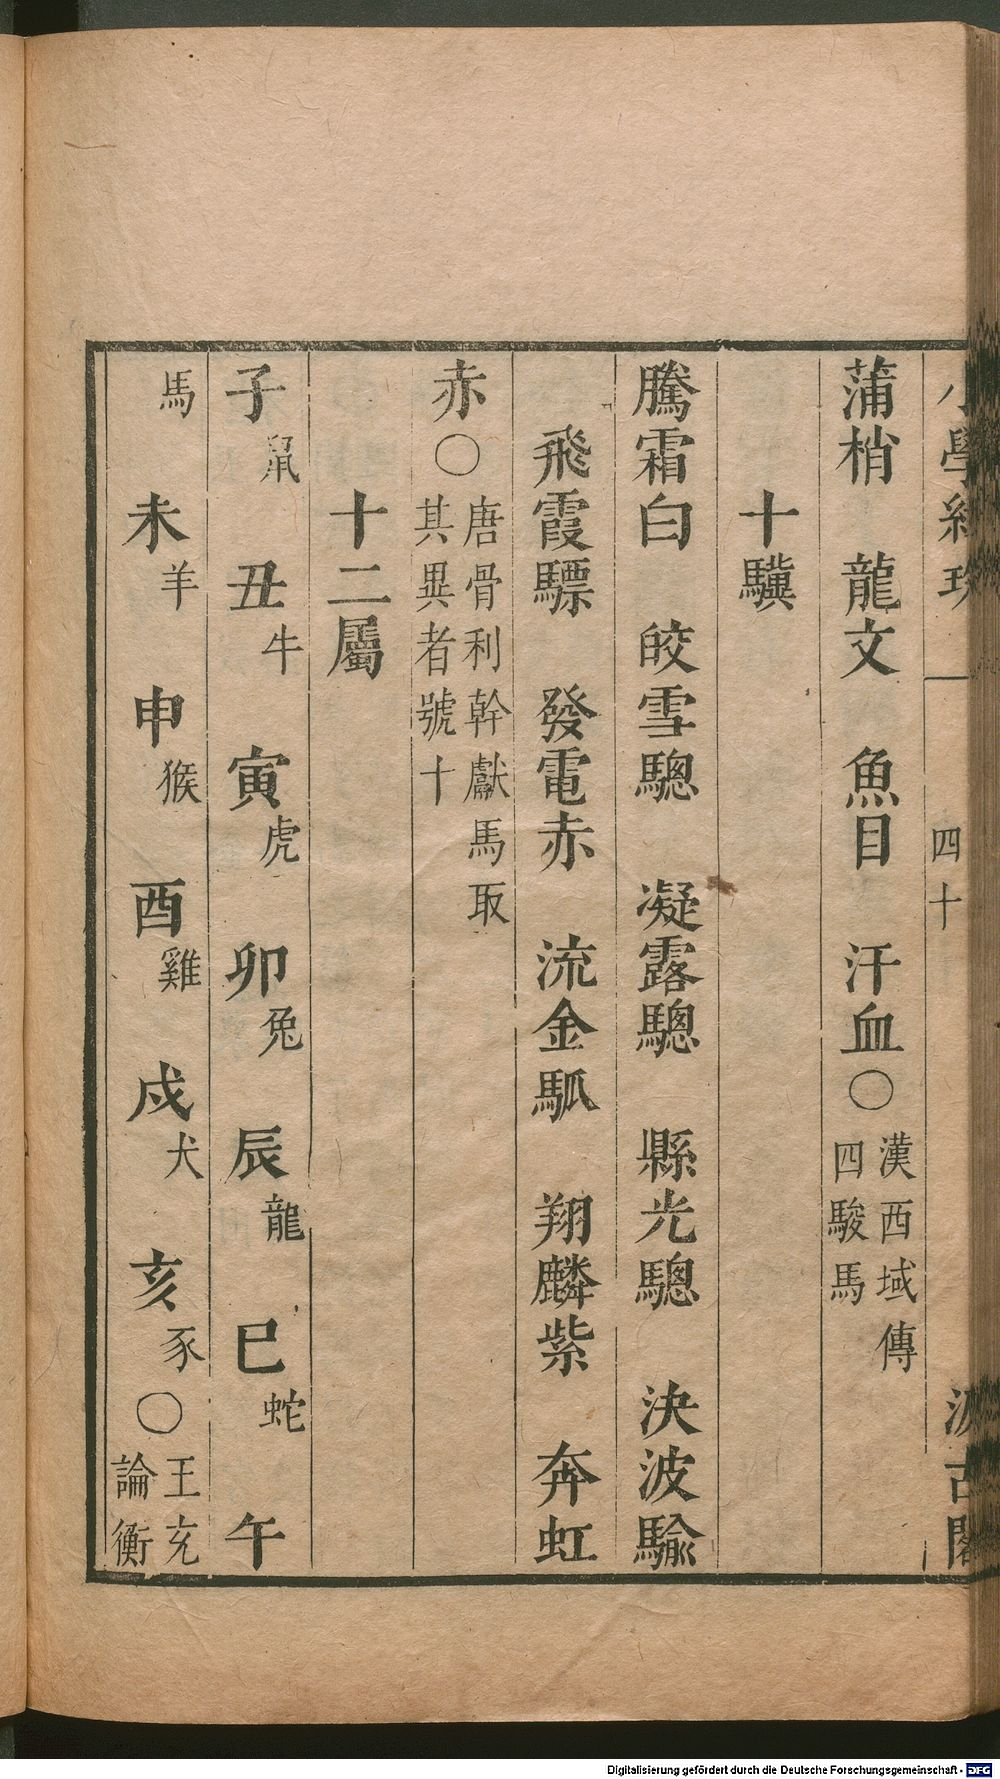 小學紺珠 四十 汲古閣
蒲梢 龍文 魚目 汗血○漢西域傳四駿馬
十驥
騰霜白 皎雪驄 凝露驄 縣光驄 決波騟
飛霞驃 發電赤 流金䯄 翔麟紫 奔虹
赤○唐骨利幹獻馬取其異者號十
十二屬
子鼠 丑牛 寅虎 卯兔 辰龍 巳蛇 午
馬 未羊 申猴 酉雞 戍犬 亥豕○王充論衡
Digitalisierung gefördert durch die Deutsche Forschungsgemeinschaft - DFG